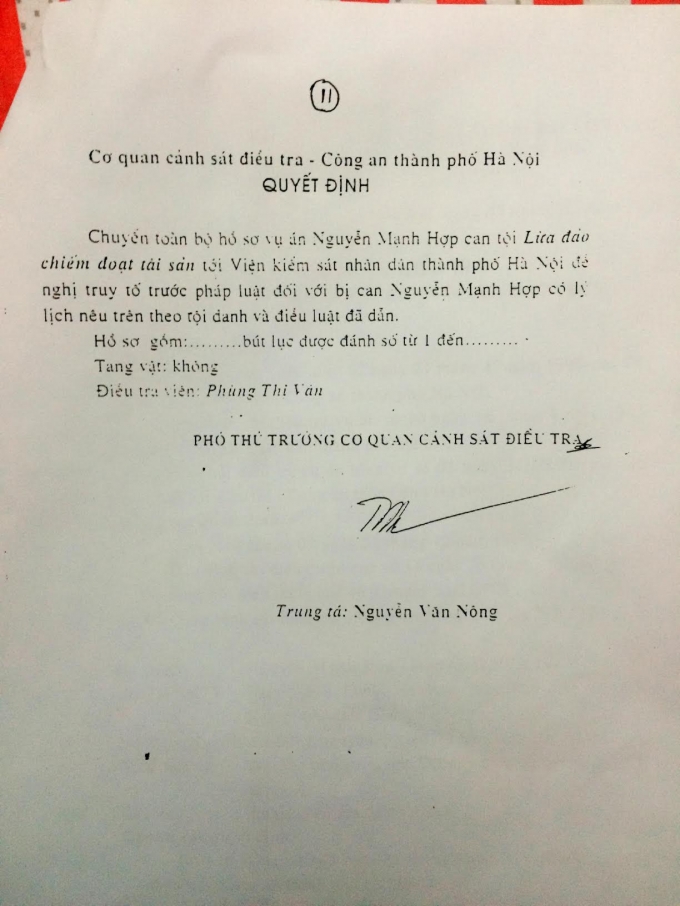 11
Cơ quan cảnh sát điều tra - Công an thành phố Hà Nội
QUYẾT ĐỊNH
Chuyển toàn bộ hồ sơ vụ án Nguyễn Mạnh Hợp can tội Lừa đảo
chiếm đoạt tài sản tới Viện kiểm sát nhân dân thành phố Hà Nội đề
nghị truy tố trước pháp luật đối với bị can Nguyễn Mạnh Hợp có lý
lịch nêu trên theo tội danh và điều luật đã dẫn.
Hồ sơ gồm:.........bút lục được đánh số từ 1 đến.........
Tang vật: không
Điều tra viên: Phùng Thi Vân
PHÓ THỦ TRƯỞNG CƠ QUAN CẢNH SÁT ĐIỀU TRA
Trung tá: Nguyễn Văn Nông